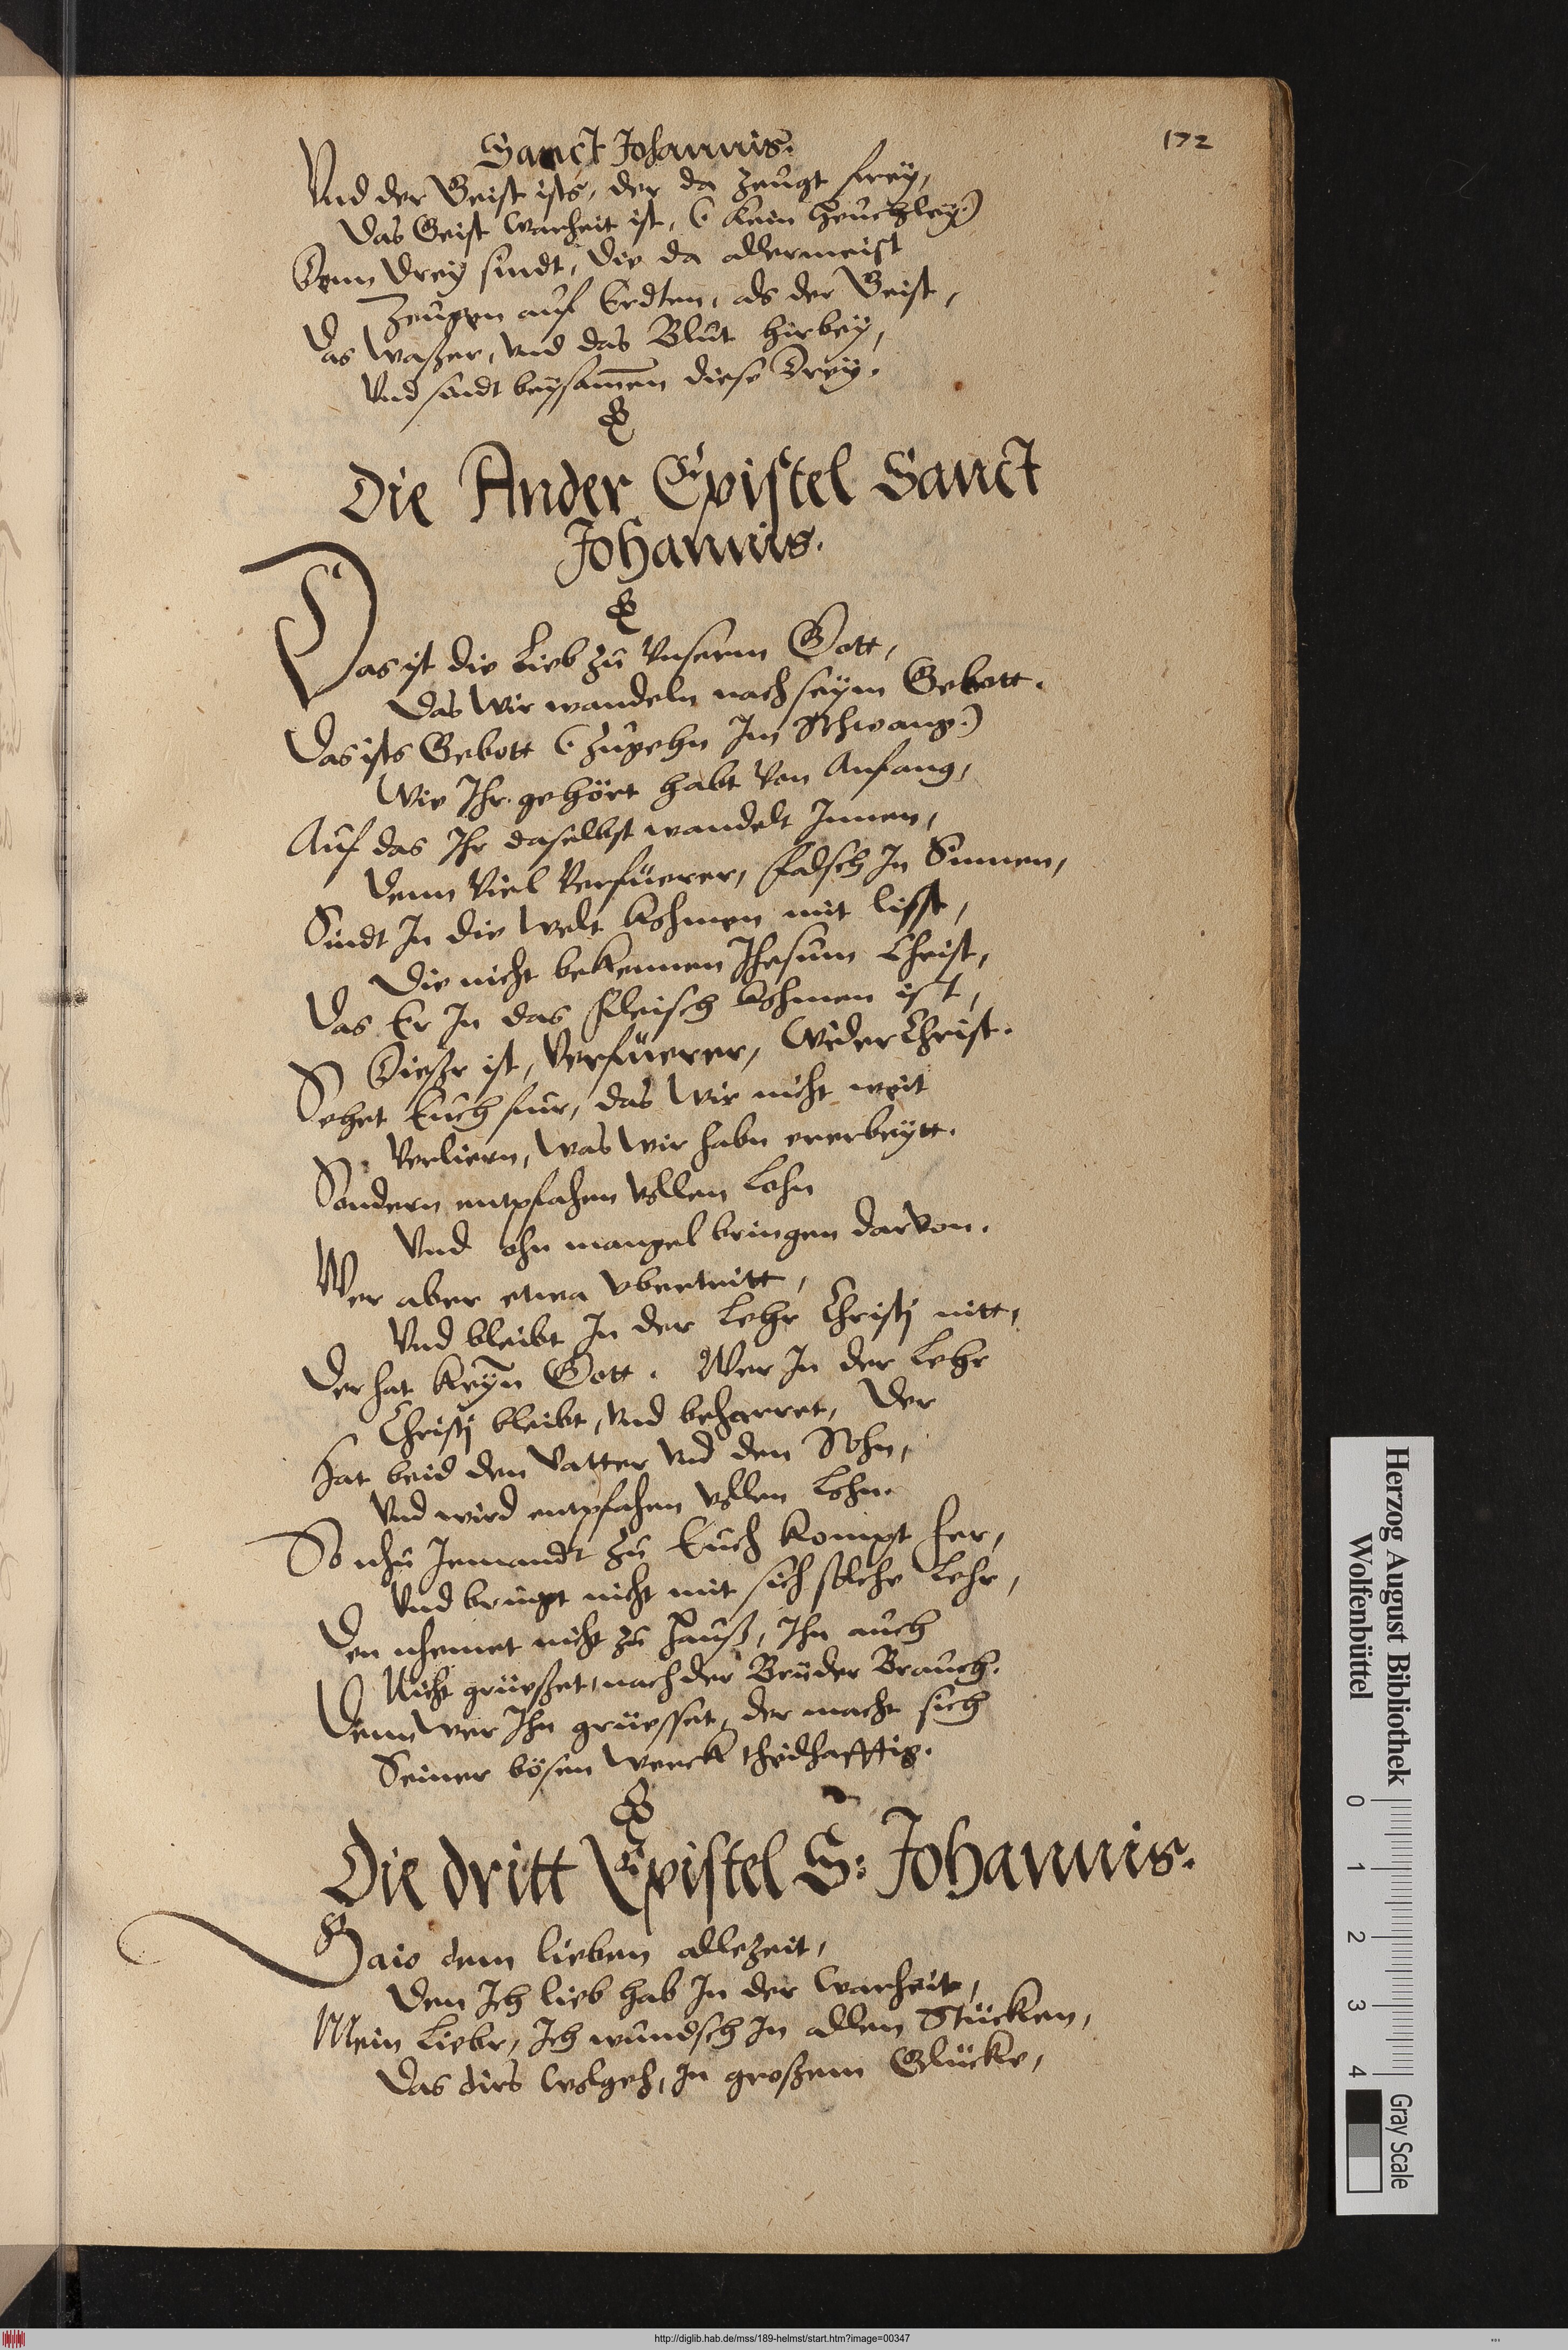 Sanct Johannis.
172
Vnd der Geist ists, der da zeugt frey,
Das Geist Warheit ist, (. kein Heuchley.)
Denn drey sindt, die da allermeist
Zeugen auf Erdten, als der Geist,
Das Waßer, vnd das Blut hirbey,
Vnd sindt beysamen diese Drey.
Die Ander Epistel Sanct
Johannis.
Das ist die Lieb zu Vnserm Gott,
Das Wir wandeln nach seym Gebott.
Das ists Gebott (. zugehn Im Schwang.)
Wie Ihr gehört habt Von Anfang,
Auf das Ihr daselbst wandelt Innen,
Denn Viel Verfüerer, falsch In Sinnen,
Sindt In die Welt kohmen mit lisst,
Die nicht bekennen Ihesum Christ,
Das Er In das fleisch kohmen ist,
Dießr ist, Verfüerer, WiderChrist.
Sehet Euch fuir, das Wir nicht weit
Verliern, Was Wir habn ererbeytt.
Sondern entpfahen Vollen Lohn
Vnd ohn mangel bringen darVon.
Wer aber etwa Vbertritt,
Vnd bleibt In der Lehr Christj nitt,
Der hat keyn Gott. Wer In der Lehr
Christj bleibt, Vnd beharret, Der
Hat beid den Vatter Vnd den Sohn,
Vnd wird entpfahen Vollen Lohn.
So nhu Jemandt zu Euch kompt her,
Vnd bringt nicht mit sich solche Lehr,
Den nhemet nicht zu Hauß, Ihn auch
Nicht grüeßet, nach der Brüder Brauch.
Denn Wer Ihn grüesset, der macht sich
Seiner bösen Werck theilhafftig.
Die dritt Epistel S: Johannis.
Gaio dem lieben allezeit,
Den Ich lieb hab In der Warheit,
Mein Liebr, Ich wundsch In allen Stücken,
Das dirs Wolgeh, In großem Glücke,
Herzog August Bibliothek
Wolfenbüttel
0 1 2 3 4
Gray Scale
http://diglib.hab.de/mss/189-helmst/start.htm?image=00347